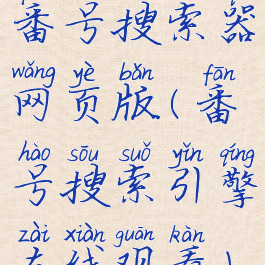 番号搜索器
wǎng yè bǎn fān
网页版(番
hào sōu suǒ yǐn qíng
号搜索引擎
zài xiàn guān kàn
在线观看)